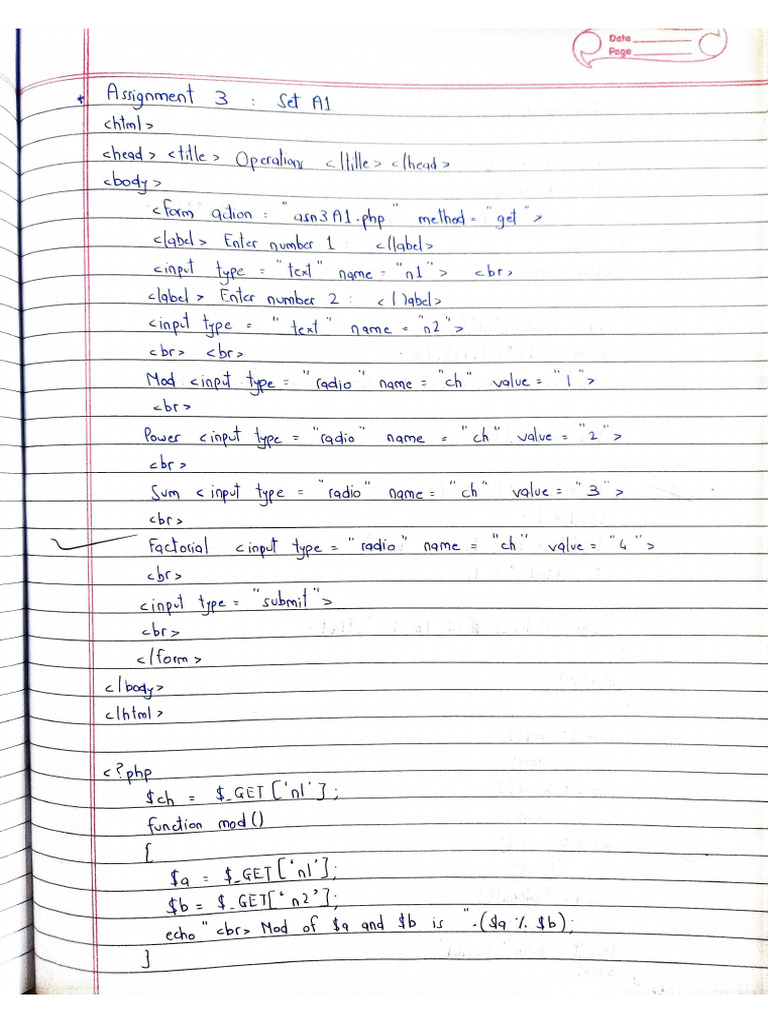 Date
Page
* Assignment 3 : Set A1
<html>
<head> <title> Operations </title> </head>
<body>
<form action = "asn3A1.php" method = "get">
<label> Enter number 1 : </label>
<input type = "text" name = "n1"> <br>
<label> Enter number 2 : </label>
<input type = "text" name = "n2">
<br> <br>
Mod <input type = "radio" name = "ch" value = "1">
<br>
Power <input type = "radio" name = "ch" value = "2">
<br>
Sum <input type = "radio" name = "ch" value = "3">
<br>
Factorial <input type = "radio" name = "ch" value = "4">
<br>
<input type = "submit">
<br>
</form>
</body>
</html>
<?php
$ch = $_GET['n1'];
function mod()
{
$a = $_GET['n1'];
$b = $_GET['n2'];
echo "<br> Mod of $a and $b is ".($a % $b);
}